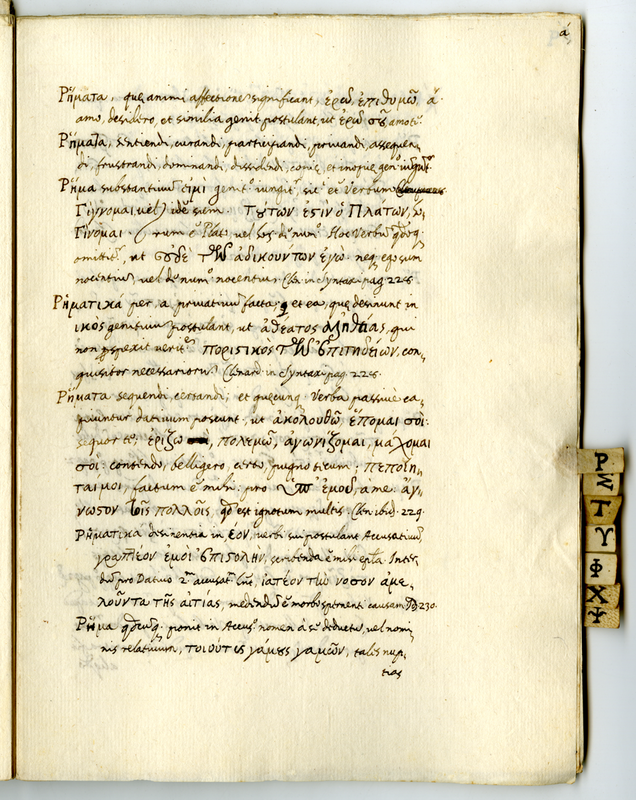 ά
Ρήματα, quae animi affectione significant, ἐρῶ, ἐπιθυμῶ, ά.
amo, desidero, et similia genit postulant, ut ἐρῶ σοῦ, amo te.
Ρήματα, sentiendi, curandi, participandi, privandi, assequen-
di, frustrandi, dominandi, dissidendi, et inopie gen.
Ρῆμα substantivum εἰμι genit. iungit., sic et verbum
Γίγνομαι, vel idem siem τούτων ἐστὶν ὁ Πλάτων,
Γίνομαι. rum e Plato, Hoc verbu
omittit., ut οὐδὲ τῶν ἀδικούντων ἐγώ. neq. ego sum
nocentium, vel de num. nocentium. in Syntaxi pag. 228.
Ρηματικά per, a, privativum facta, et ea, quae desinunt in
ικὸς genitivum postulant, ut ἀθέατος ἀληθείας, qui
non veritatem ποριστικὸς τῶν ἐπιτηδείων, con-
quisitor necessariorum. in Syntaxi pag. 228.
Ρήματα sequendi, certandi, et quecunq. verba passive ca-
piuntur dativum poscunt, ut ἀκολουθῶ, ἕπομαι σοι.
sequor te, ἐρίζω, πολεμῶ, ἀγωνίζομαι, μάχομαι
σοι. contendo, belligero, certo, pugno tecum; πεποίη-
ται μοι, factum e mihi. pro ὑπ' ἐμοῦ, a me. ἄγ-
νωστον τοῖς πολλοῖς, quod est ignotum multis. ibid. 229.
Ρηματικα desinentia in έον, verbi sui postulant Accusativu,
γραπτέον ἐμοὶ ἐπιστολήν, scribenda e mihi Inter
dum pro Dativo 2. accusat. ἰατέον τὴν νόσον ἀμε-
λοῦντα τῆς αἰτίας, medendum e morbo causam. 230.
Ρῆμα ponit in Accus. nomen a se deductu, vel nomi-
nis relativum, τοιούτους γάμους γαμῶν, tales nup-
tias
Ρ
Σ
Τ
Υ
Φ
Χ
Ψ